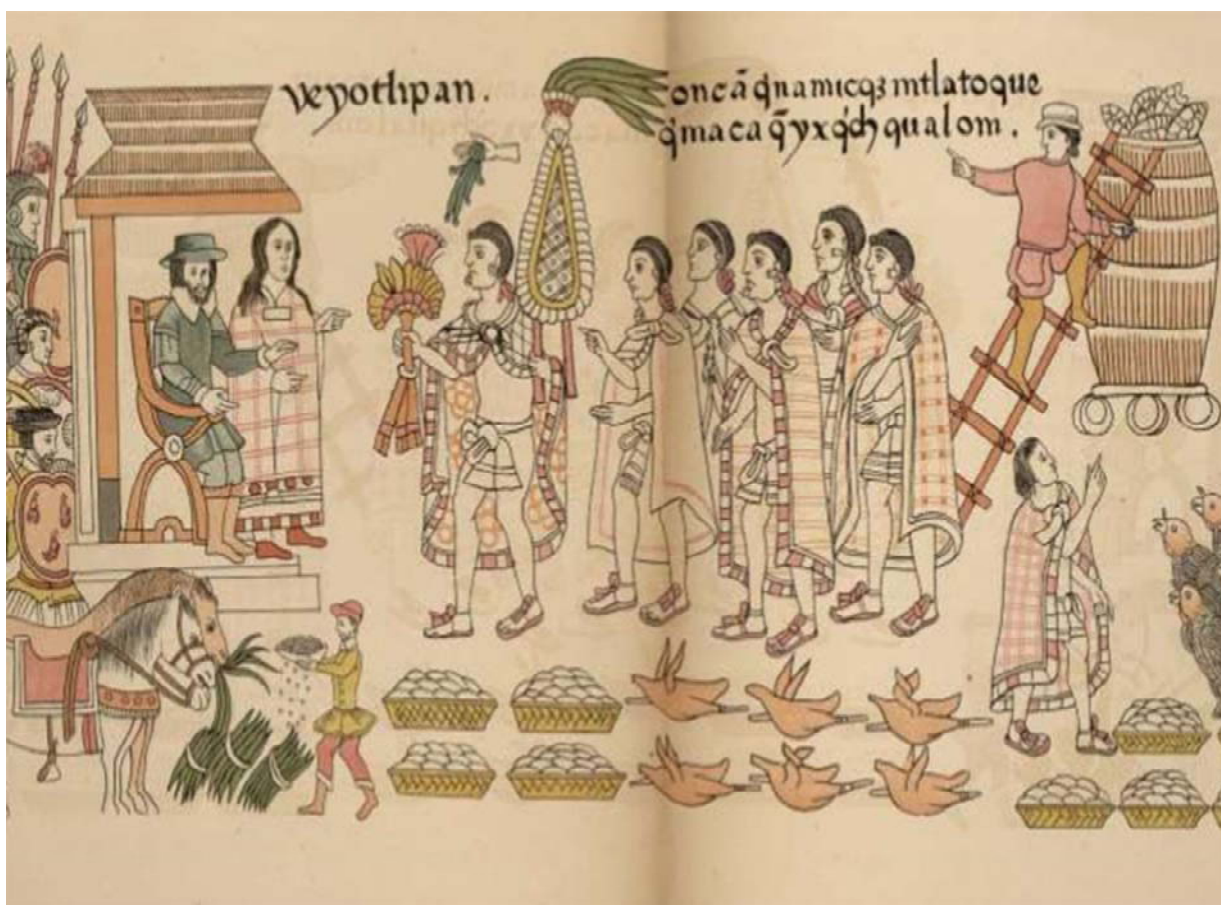 veyotlipan.
oncã q̃namicqȝ mtlatoque
q̃maca q̃yxq̃ch qualom.